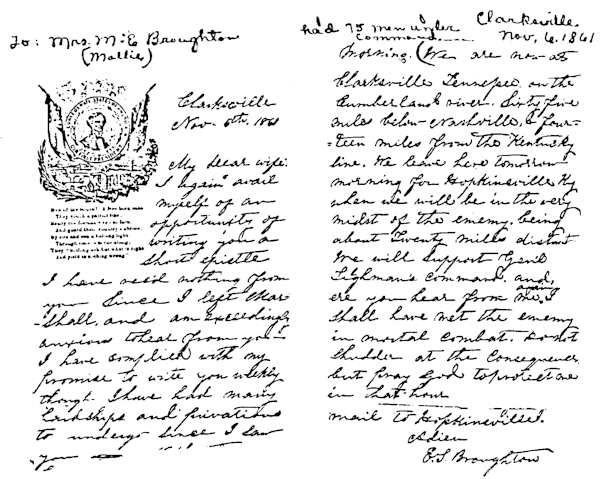 To: Mrs. M. E. Broughton
(Mollie)
Clarksville
Nov. 6th, 1861
My dear wife:
I again avail
myself of an
opportunity of
writing you a
short epistle
I have rec'd nothing from
you since I left Mar-
shall, and am exceedingly
anxious to hear from you.
I have complied with my
promise to write you weekly
though I have had many
hardships and privations
to undergo since I saw
you
had 75 men under
command
Clarksville
Nov, 6. 1861
Morning. (We are now at
Clarksville Tennessee on the
Cumberland river. Sixty five
miles below Nashville, & four-
-teen miles from the Kentucky
line. We leave here tomorrow
morning for Hopkinsville Ky
when we will be in the very
midst of the enemy, being
about Twenty miles distant
We will support Gen'l
Tighlman's command. and,
ere you hear from me again, I
shall have met the enemy
in mortal combat. Do not
shudder at the consequences
but pray God to protect me
in that hour
mail to Hopkinsville.
Adieu
E. S. Broughton